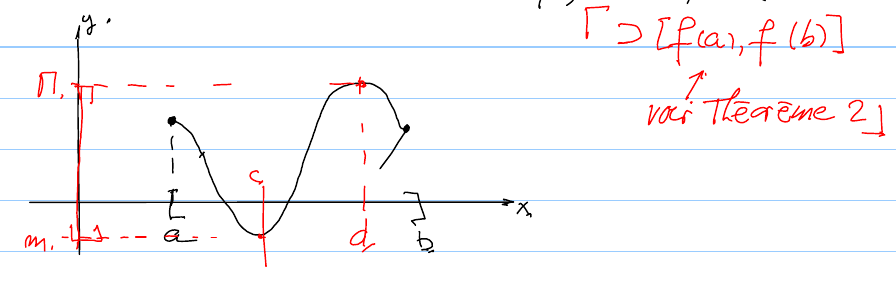 y.
[⊃ [f(a), f(b)]
voir Théorème 2]
M.
c
x
m.
a
d
b